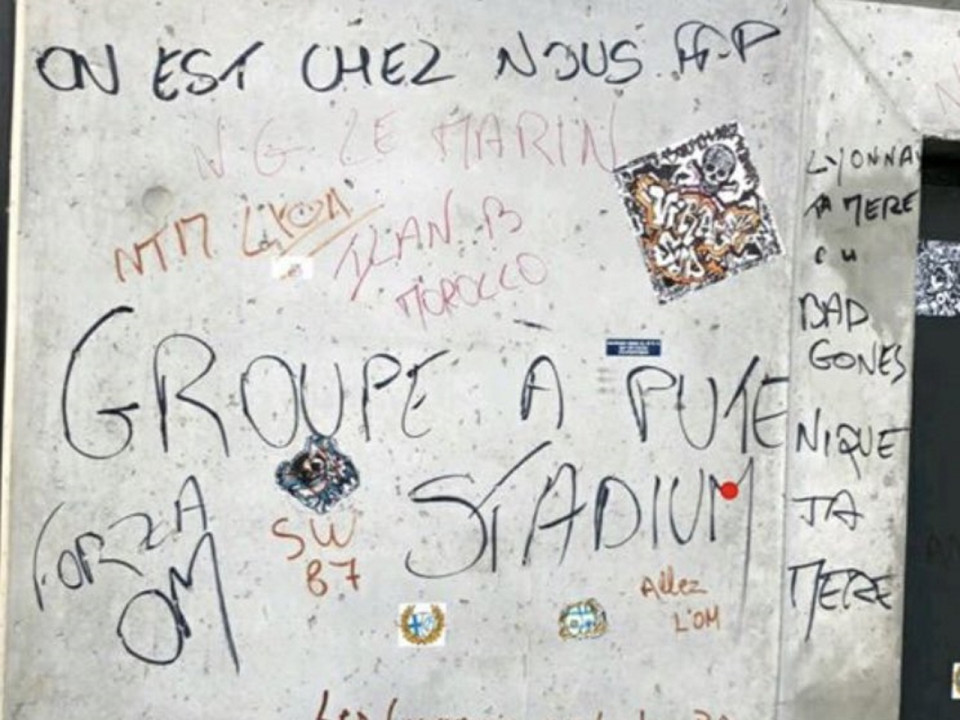 ON EST CHEZ NOUS
N G LE MARIN
NTM LYON
ILAN B
MOROCCO
GROUPE À PUTE
STADIUM
FORZA
OM
SW
87
Allez
L'OM
LYONNAI
TA MERE
BAD
GONES
NIQUE
TA
MERE